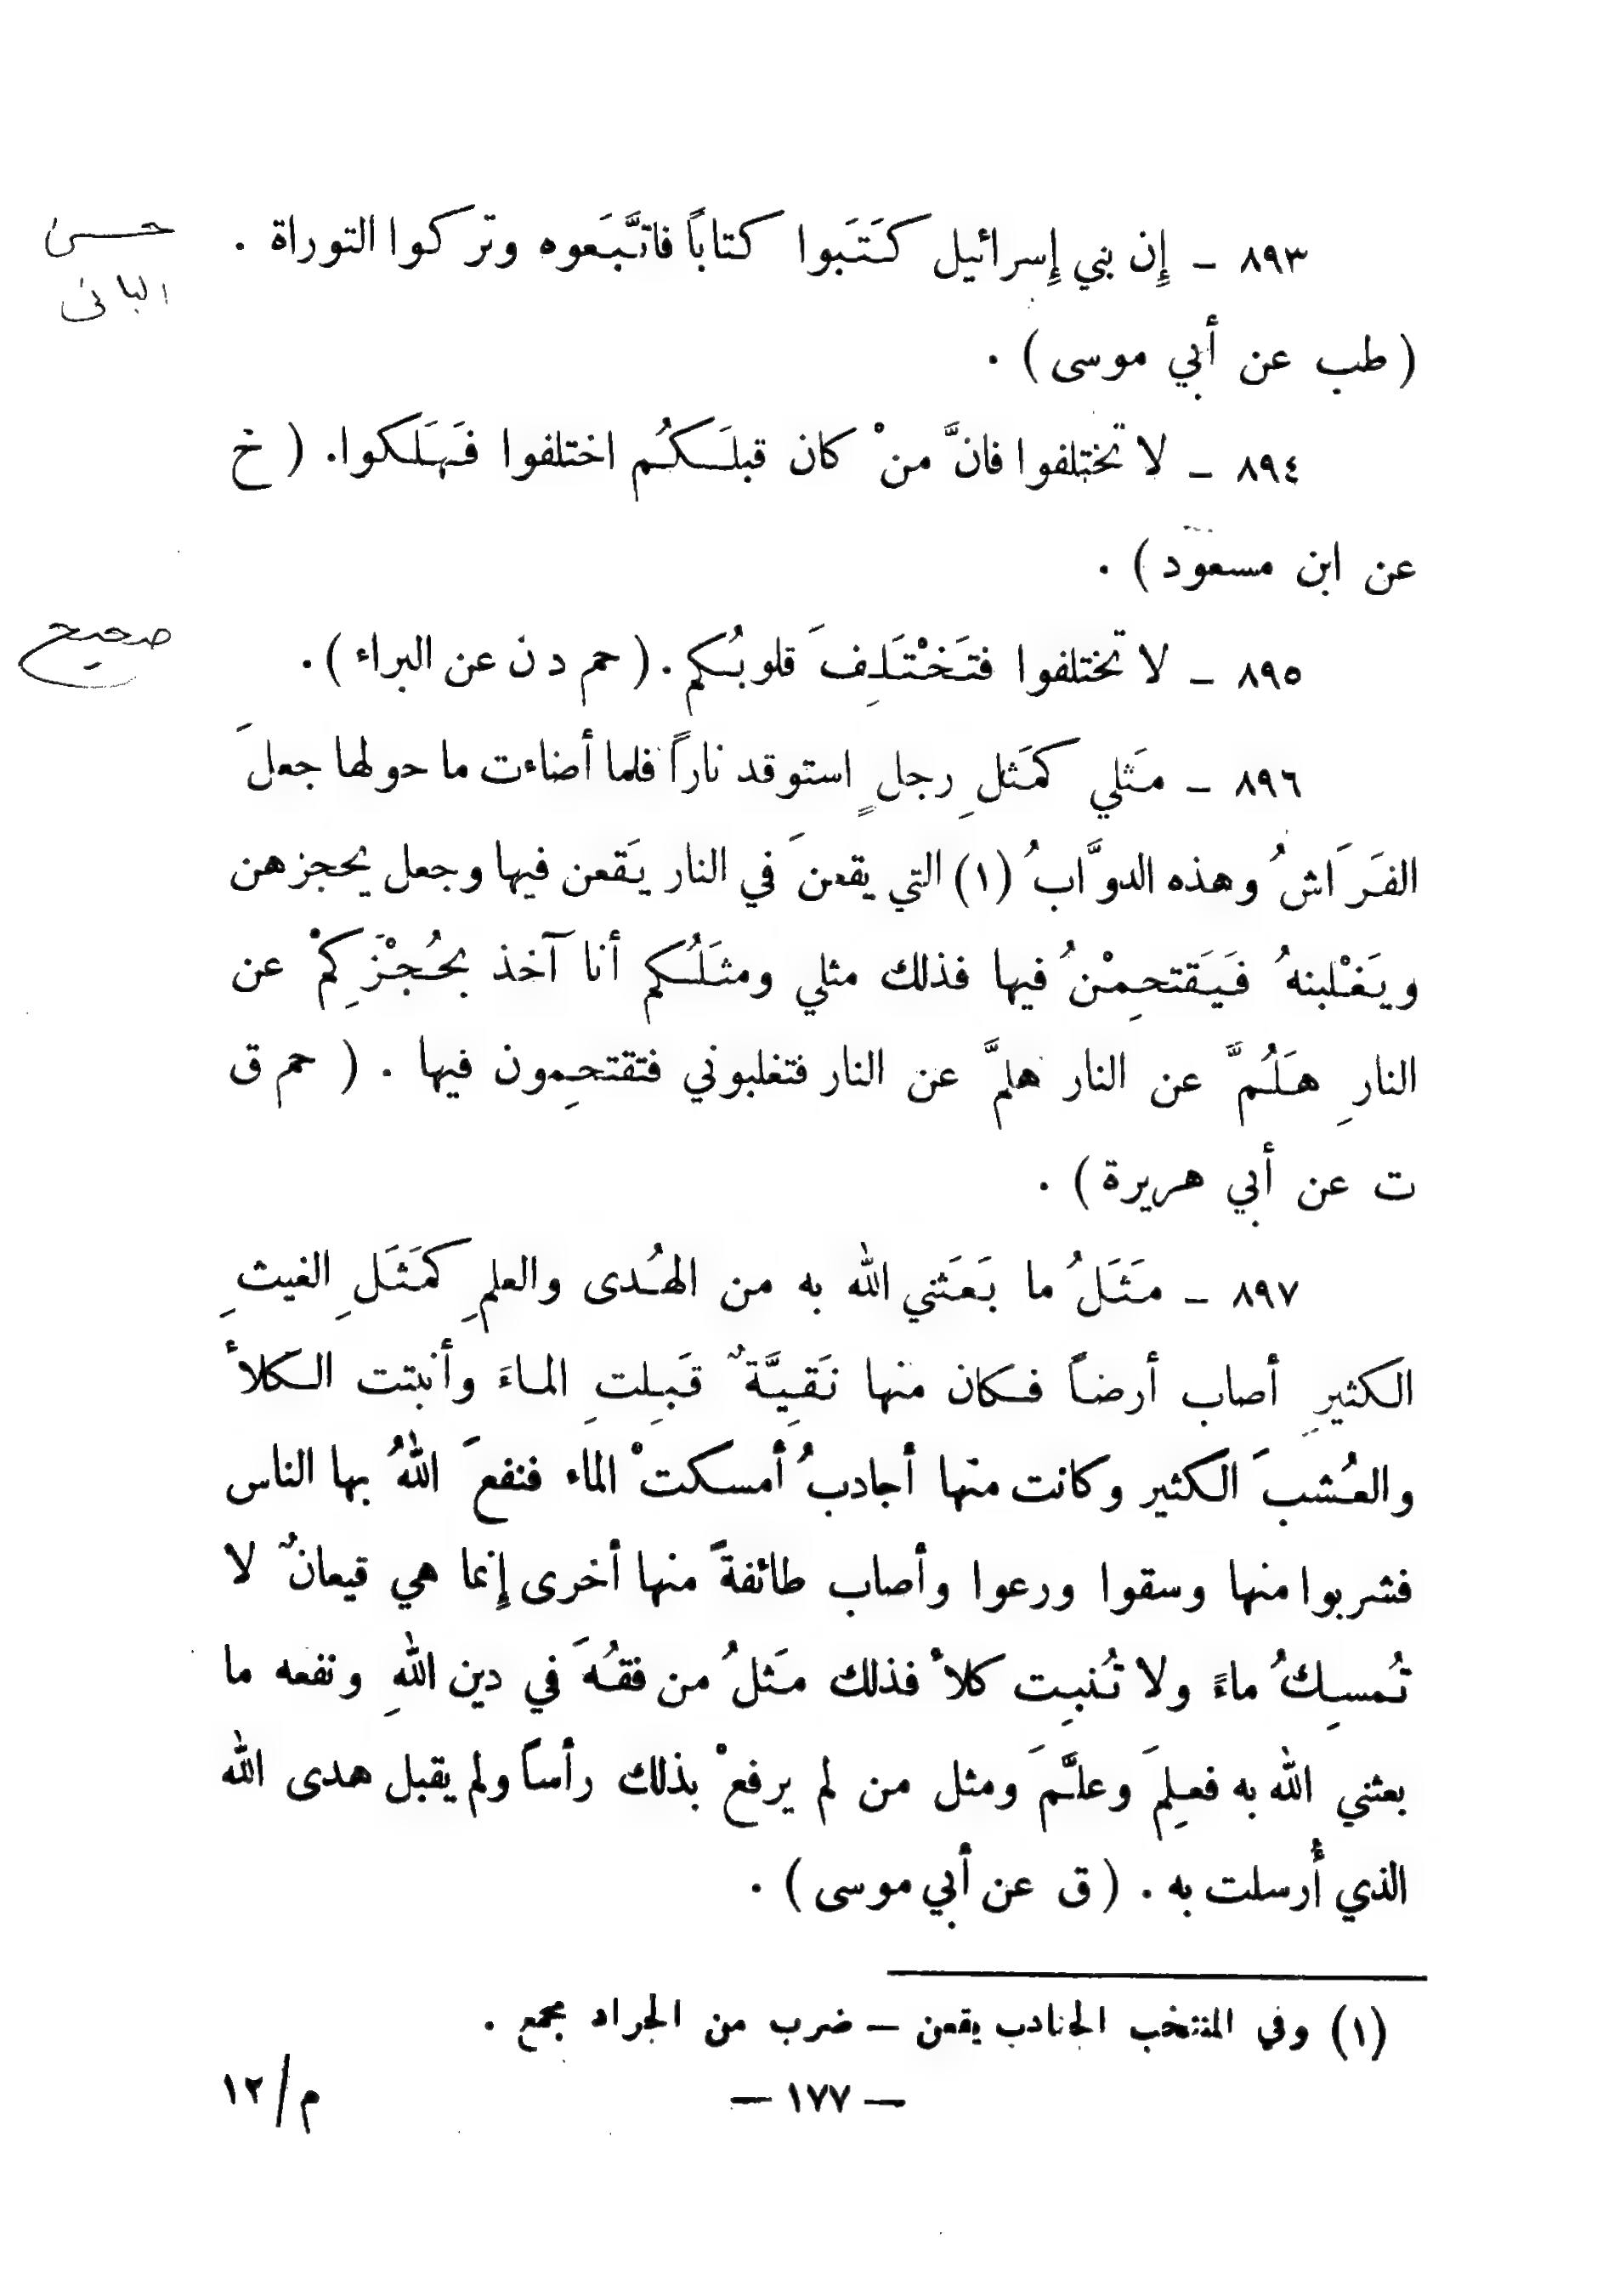 ٨٩٣ ـ إِن بني إِسرائيل كَتَبوا كتاباً فاتَّبَعوه وتركوا التوراة .
حسن
الباني
( طب عن أبي موسى ) .
٨٩٤ ـ لا تختلفوا فانَّ منْ كان قبلَكُم اختلفوا فَهَلَكوا. ( خ
عن ابن مسعود ) .
صحيح
٨٩٥ ـ لا تختلفوا فتَخْتَلِفَ قلوبُكم . ( حم د ن عن البراء ) .
٨٩٦ ـ مَثلي كمَثلِ رجلٍ استوقد ناراً فلما أضاءت ما حولها جعلَ
الفَرَاشُ وهذه الدوَّابُ (١) التي يقعنَ في النار يَقعن فيها وجعل يحجزهن
ويَغْلبنهُ فَيَقتحِمْنُ فيها فذلك مثلي ومثَلُكم أنا آخذ بحُجْزَكِمْ عن
النارِ هَلُمَّ عن النار هلمَّ عن النار فتغلبوني فتقتحِمون فيها . ( حم ق
ت عن أبي هريرة ) .
٨٩٧ ـ مَثَلُ ما بَعَثني الله به من الهُدى والعلمِ كمَثَلِ الغيثِ
الكثيرِ أصاب أرضاً فكان منها نَقِيَّةٌ قَبِلتِ الماءَ وأنبتت الكلأ
والعُشبَ الكثير وكانت منها أجادبُ أمسكتْ الماء فنفعَ اللهُ بها الناس
فشربوا منها وسقوا ورعوا وأصاب طائفةً منها أخرى إِنما هي قيعانٌ لا
تُمسِكُ ماءً ولا تُنبِت كلأ فذلك مَثلُ من فقُهَ في دين اللهِ ونفعه ما
بعثني الله به فعلِمَ وعلَّمَ ومثل من لم يرفعْ بذلك رأساً ولم يقبل هدى الله
الذي أُرسلت به . ( ق عن أبي موسى ) .
(١) وفي المنتخب الجنادب يقعن ــ ضرب من الجراد مجمع .
ــ ١٧٧ ــ
م/١٢